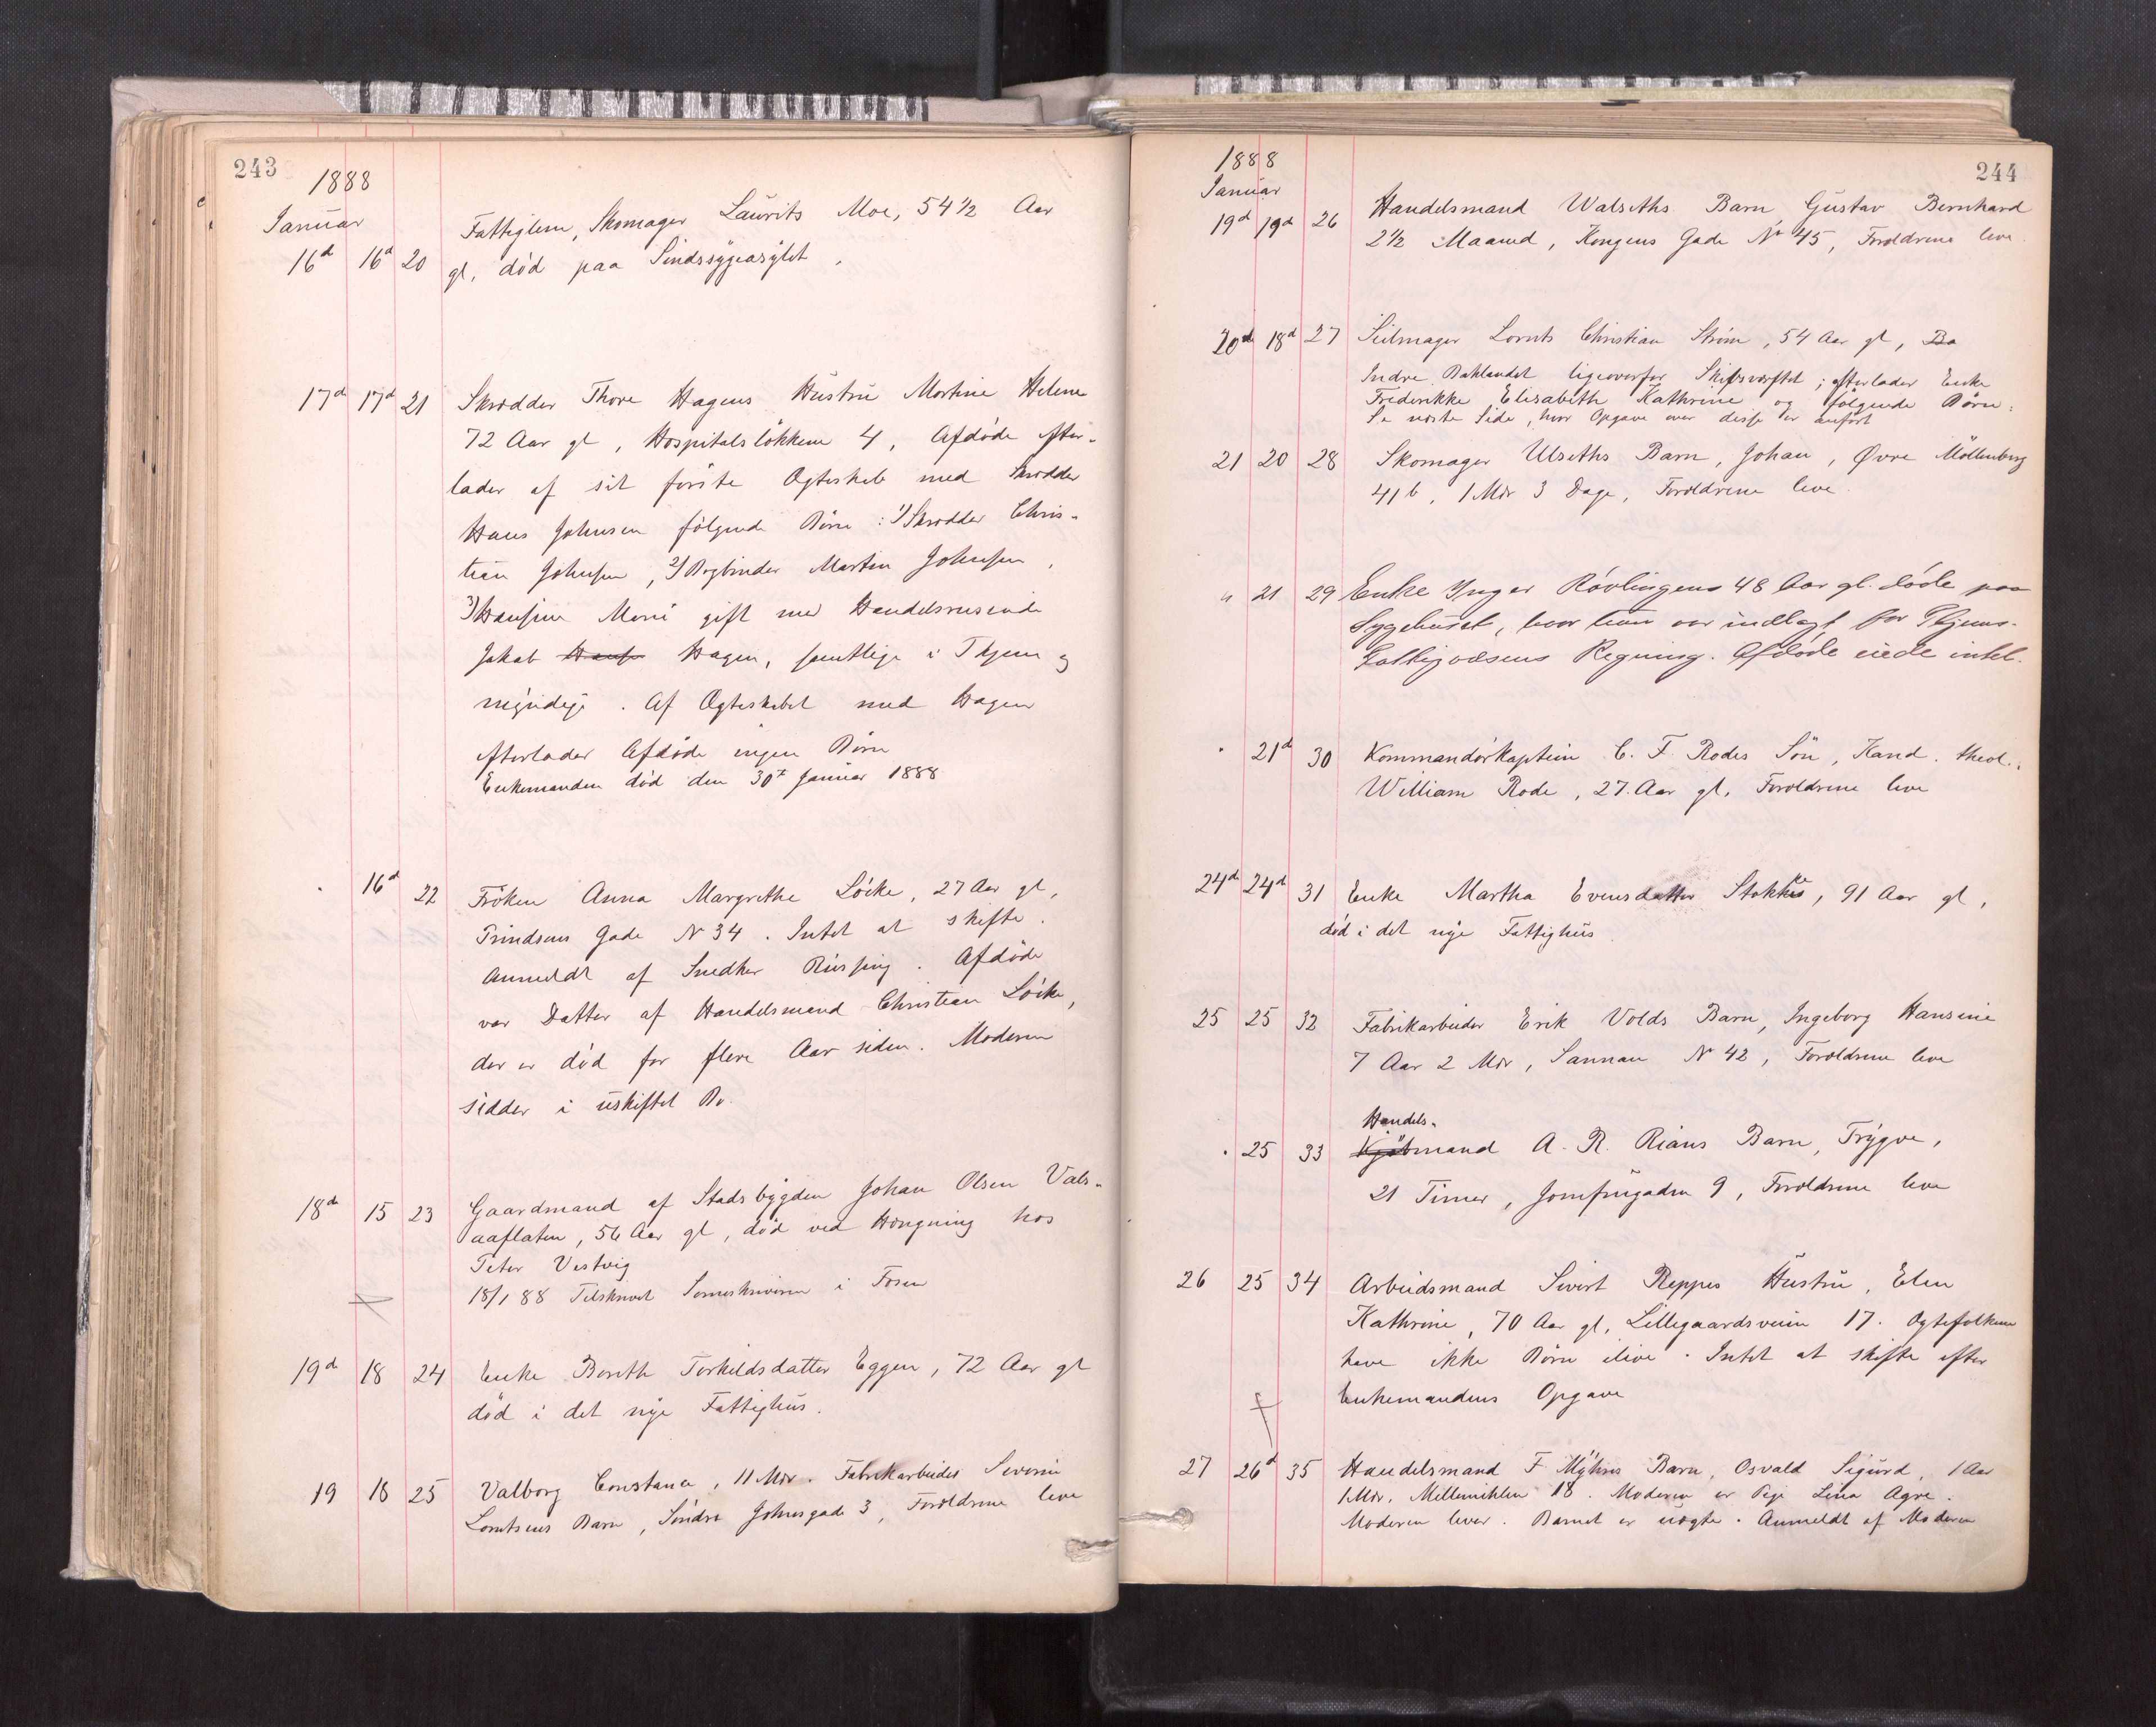 243
1888
Januar
16d 16d 20 Fattiglem, Skomager Laurits Moe, 54 1/2 Aar
gl, död paa Sindssygeasylet.
17d 17d 21 Skrædder Thore Hagens Hustru Martine Helene
72 Aar gl, Hospitalslökken 4, Afdöde efter-
lader af sit förste Ægteskab med Skrædder
Hans Johnsen fölgende Börn: 1) Skrædder Chris-
tian Johnsen, 2) Bogbinder Martin Johnsen,
3) Hansine Marie gift med Handelsreisende
Jakob Hans Hagen, samtlige i Thjem og
myndige. Af Ægteskabet med Hagen
efterlader Afdöde ingen Börn
Enkemanden död den 30t Januar 1888
16d 22 Fröken Anna Margrethe Löcke, 27 Aar gl,
Prindsens Gade N 34. Intet at skifte.
Anmeldt af Snedker Rüssing. Afdöde
var Datter af Handelsmand Christian Löcke,
der er död for flere Aar siden. Moderen
sidder i uskiftet Bo.
18d 15 23 Gaardmand af Stadsbygden Johan Olsen Vals-
aaflaten, 56 Aar gl, död ved Hængning hos
Peter Vestvig
18/1 88 Tilskrevet Sorenskriveren i Fosen
19d 18 24 Enke Bereth Torkildsdatter Eggen, 72 Aar gl
död i det nye Fattighus.
19 18 25 Valborg Constance, 11 Mdr. Fabrikarbeider Severin
Lorntsens Barn, Söndre Johnsgade 3, Forældrene leve
244
1888
Januar
19d 19d 26 Handelsmand Walseths Barn, Gustav Bernhard
2 1/2 Maaned, Kongens Gade No 45, Forældrene leve.
20d 18d 27 Seilmager Lornts Christian Ström, 54 Aar gl, Ba
Indre Baklandet ligeoverfor Skibsværftet; efterlader Enke
Frederikke Elisabeth Kathrine og fölgende Börn:
Se næste Side, hvor Opgave over disse er anført
21 20 28 Skomager Ulseths Barn, Johan, Øvre Möllenberg
41b, 1 Mdr 3 Dage, Forældrene leve.
" 21 29 Enke Inger Rövlingens 48 Aar gl. döde paa
Sygehuset, hvor hun var indlagt for Thjems-
Fattigvæsens Regning. Afdöde eiede intet.
" 21d 30 Kommandörkaptein C. F. Rodes Sön, Kand. theol.,
William Rode, 27 Aar gl, Forældrene leve
24d 24d 31 Enke Martha Evensdatter Stokke, 91 Aar gl,
död i det nye Fattighus
25 25 32 Fabrikarbeider Erik Volds Barn, Ingeborg Hansine
7 Aar 2 Mdr, Sannan N 42, Forældrene leve
Handels-
" 25 33 Kjöbmand A. R. Rians Barn, Trygve,
21 Timer, Jomfrugaden 9, Forældrene leve
26 25 34 Arbeidsmand Sivert Reppes Hustru, Elen
Kathrine, 70 Aar gl, Lillegaardsveien 17. Ægtefolkene
have ikke Börn ilive. Intet at skifte efter
Enkemandens Opgave
27 26d 35 Handelsmand F Myhres Barn, Osvald Sigurd, 1 Aar
1 Mdr, Mellemihlen 18. Moderen er Pige Lina Agre.
Moderen lever. Barnet er uægte. Anmeldt af Moderen